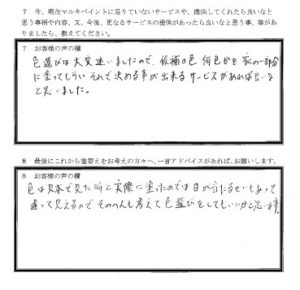 7 今、現在マルキペイントに足りていないサービスや、提供してくれたら良いなと
思う事柄や内容、又、今後、更なるサービスの提供があったら良いなと思う事、等があ
りましたら、教えてください。
7 お客様の声の欄
色選びは大変迷いましたので、候補の色 何色かを 家の一部分
に塗ってもらい それで決める事が出来るサービスがあれば良いな
と思いました。
8 最後にこれから塗替えをお考えの方々へ、一言アドバイスがあれば、お願いします。
8 お客様の声の欄
色は見本で見た時と実際に塗ったのでは日が当たるせいもあって
違って見えるので そのへんも考えて色選びをしてもいいかと思います